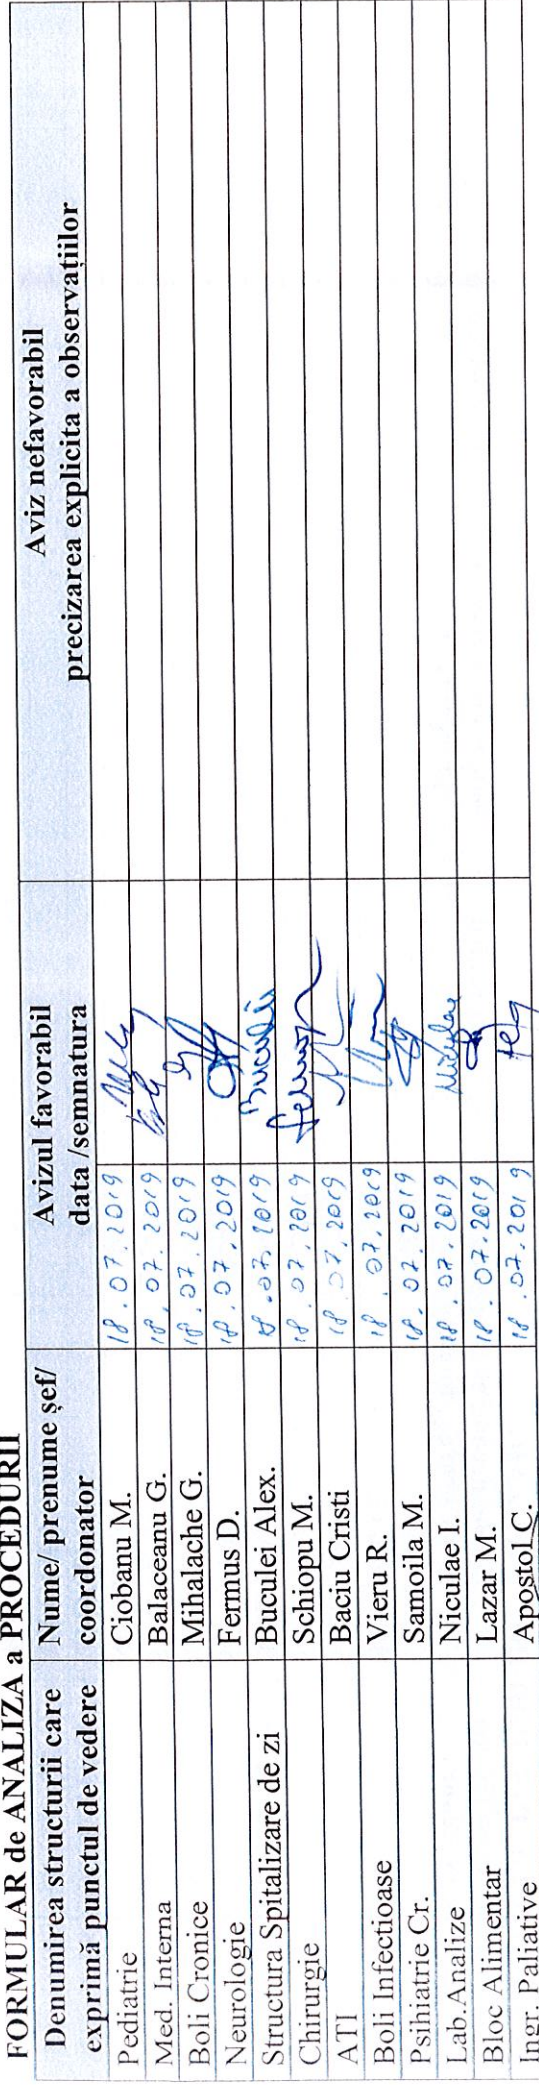 FORMULAR de ANALIZA a PROCEDURII
Denumirea structurii care exprimă punctul de vedere Nume/ prenume șef/ coordonator Avizul favorabil data /semnatura Aviz nefavorabil precizarea explicita a observațiilor
Pediatrie Ciobanu M. 18.07.2019
Med. Interna Balaceanu G. 18.07.2019
Boli Cronice Mihalache G. 18.07.2019
Neurologie Fermus D. 18.07.2019
Structura Spitalizare de zi Buculei Alex. 18.07.2019 Buculei
Chirurgie Schiopu M. 18.07.2019
ATI Baciu Cristi 18.07.2019
Boli Infectioase Vieru R. 18.07.2019
Psihiatrie Cr. Samoila M. 18.07.2019
Lab.Analize Niculae I. 18.07.2019 Niculae
Bloc Alimentar Lazar M. 18.07.2019
Ingr. Paliative Apostol C. 18.07.2019